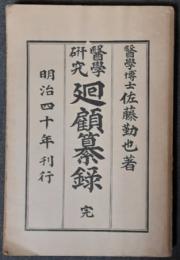 醫學博士佐藤勤也著
醫學
研究
廻顧纂錄 完
明治四十年刊行